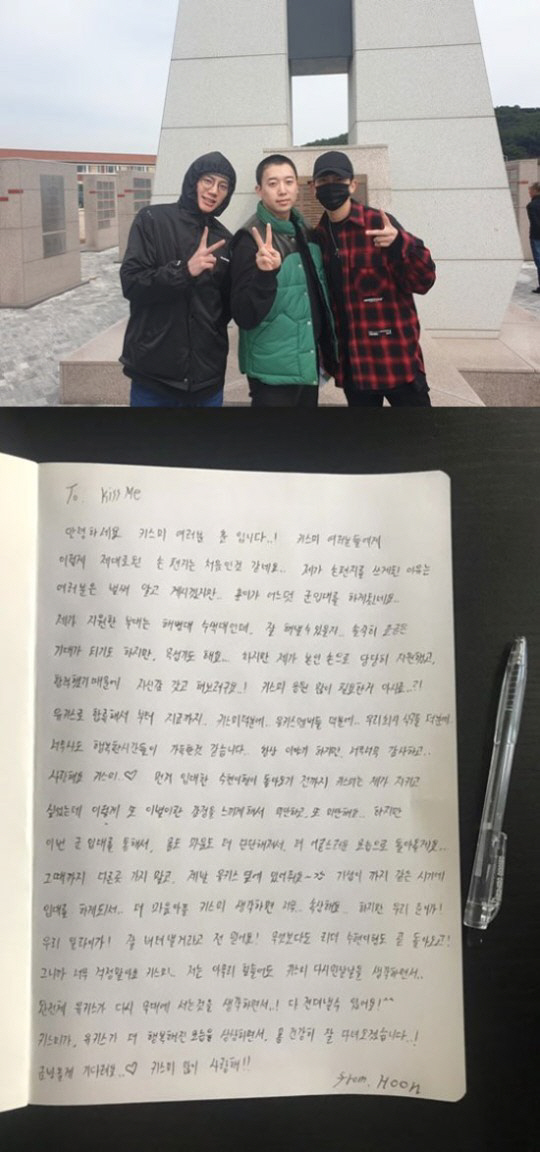 To. Kiss Me
안녕하세요 키스미 여러분 훈 입니다..! 키스미 여러분들에게
이렇게 제대로된 손 편지는 처음인것 같네요.. 제가 손편지를 쓰게된 이유는
여러분은 벌써 알고 계시겠지만.. 훈이가 어느덧 군입대를 하게됐네요..
제가 지원한 부대는 해병대 수색대인데, 잘 해낼수있을지.. 솔직히 조금은
기대가 되기도 하지만, 무섭기도 해요.. 하지만 제가 본인 손으로 당당히 지원했고,
합격했기때문에 자신감 갖고 해보려구요..! 키스미 응원 많이 필요한거 아시죠..?!
유키스로 합류해서 부터 지금까지.. 키스미덕분에.. 유키스멤버들 덕분에.. 우리회사 식구들 덕분에..
너무나도 행복한시간들이 가득한것 같습니다.. 항상 이야기 하지만, 너무너무 감사하고..
사랑해요 키스미..♡ 먼저 입대한 수현이형이 돌아오기 전까지 키스미는 제가 지키고
싶었는데 이렇게 또 이별이란 감정을 느끼게해서 미안하고, 또 미안해요.. 하지만
이번 군 입대를 통해서, 몸도 마음도 더 단단해져서, 더 어른스러운 모습으로 돌아올게요..
그때까지 다른곳 가지 말고, 제발 유키스 옆에 있어줘요~ 기섭이 까지 같은 시기에
입대를 하게되서.. 더 마음아플 키스미 생각하면 너무.. 속상해요.. 하지만 우리 준이가!
우리 일라이가! 잘 버텨 낼거라고 전 믿어요! 무엇보다도 리더 수현이형도 곧 돌아오고!
그니까 너무 걱정말아요 키스미.. 저는 아무리 힘들어도 키스미 다시만날날을 생각하면서..
완전체 유키스가 다시 무대에 서는것을 생각하면서..! 다 견뎌낼수 있어요!^^
키스미가, 유키스가 더 행복해진 모습을 상상하면서, 몸 건강히 잘 다녀오겠습니다..!
금방올게 기다려요..♡ 키스미 많이 사랑해!!
from. Hoon